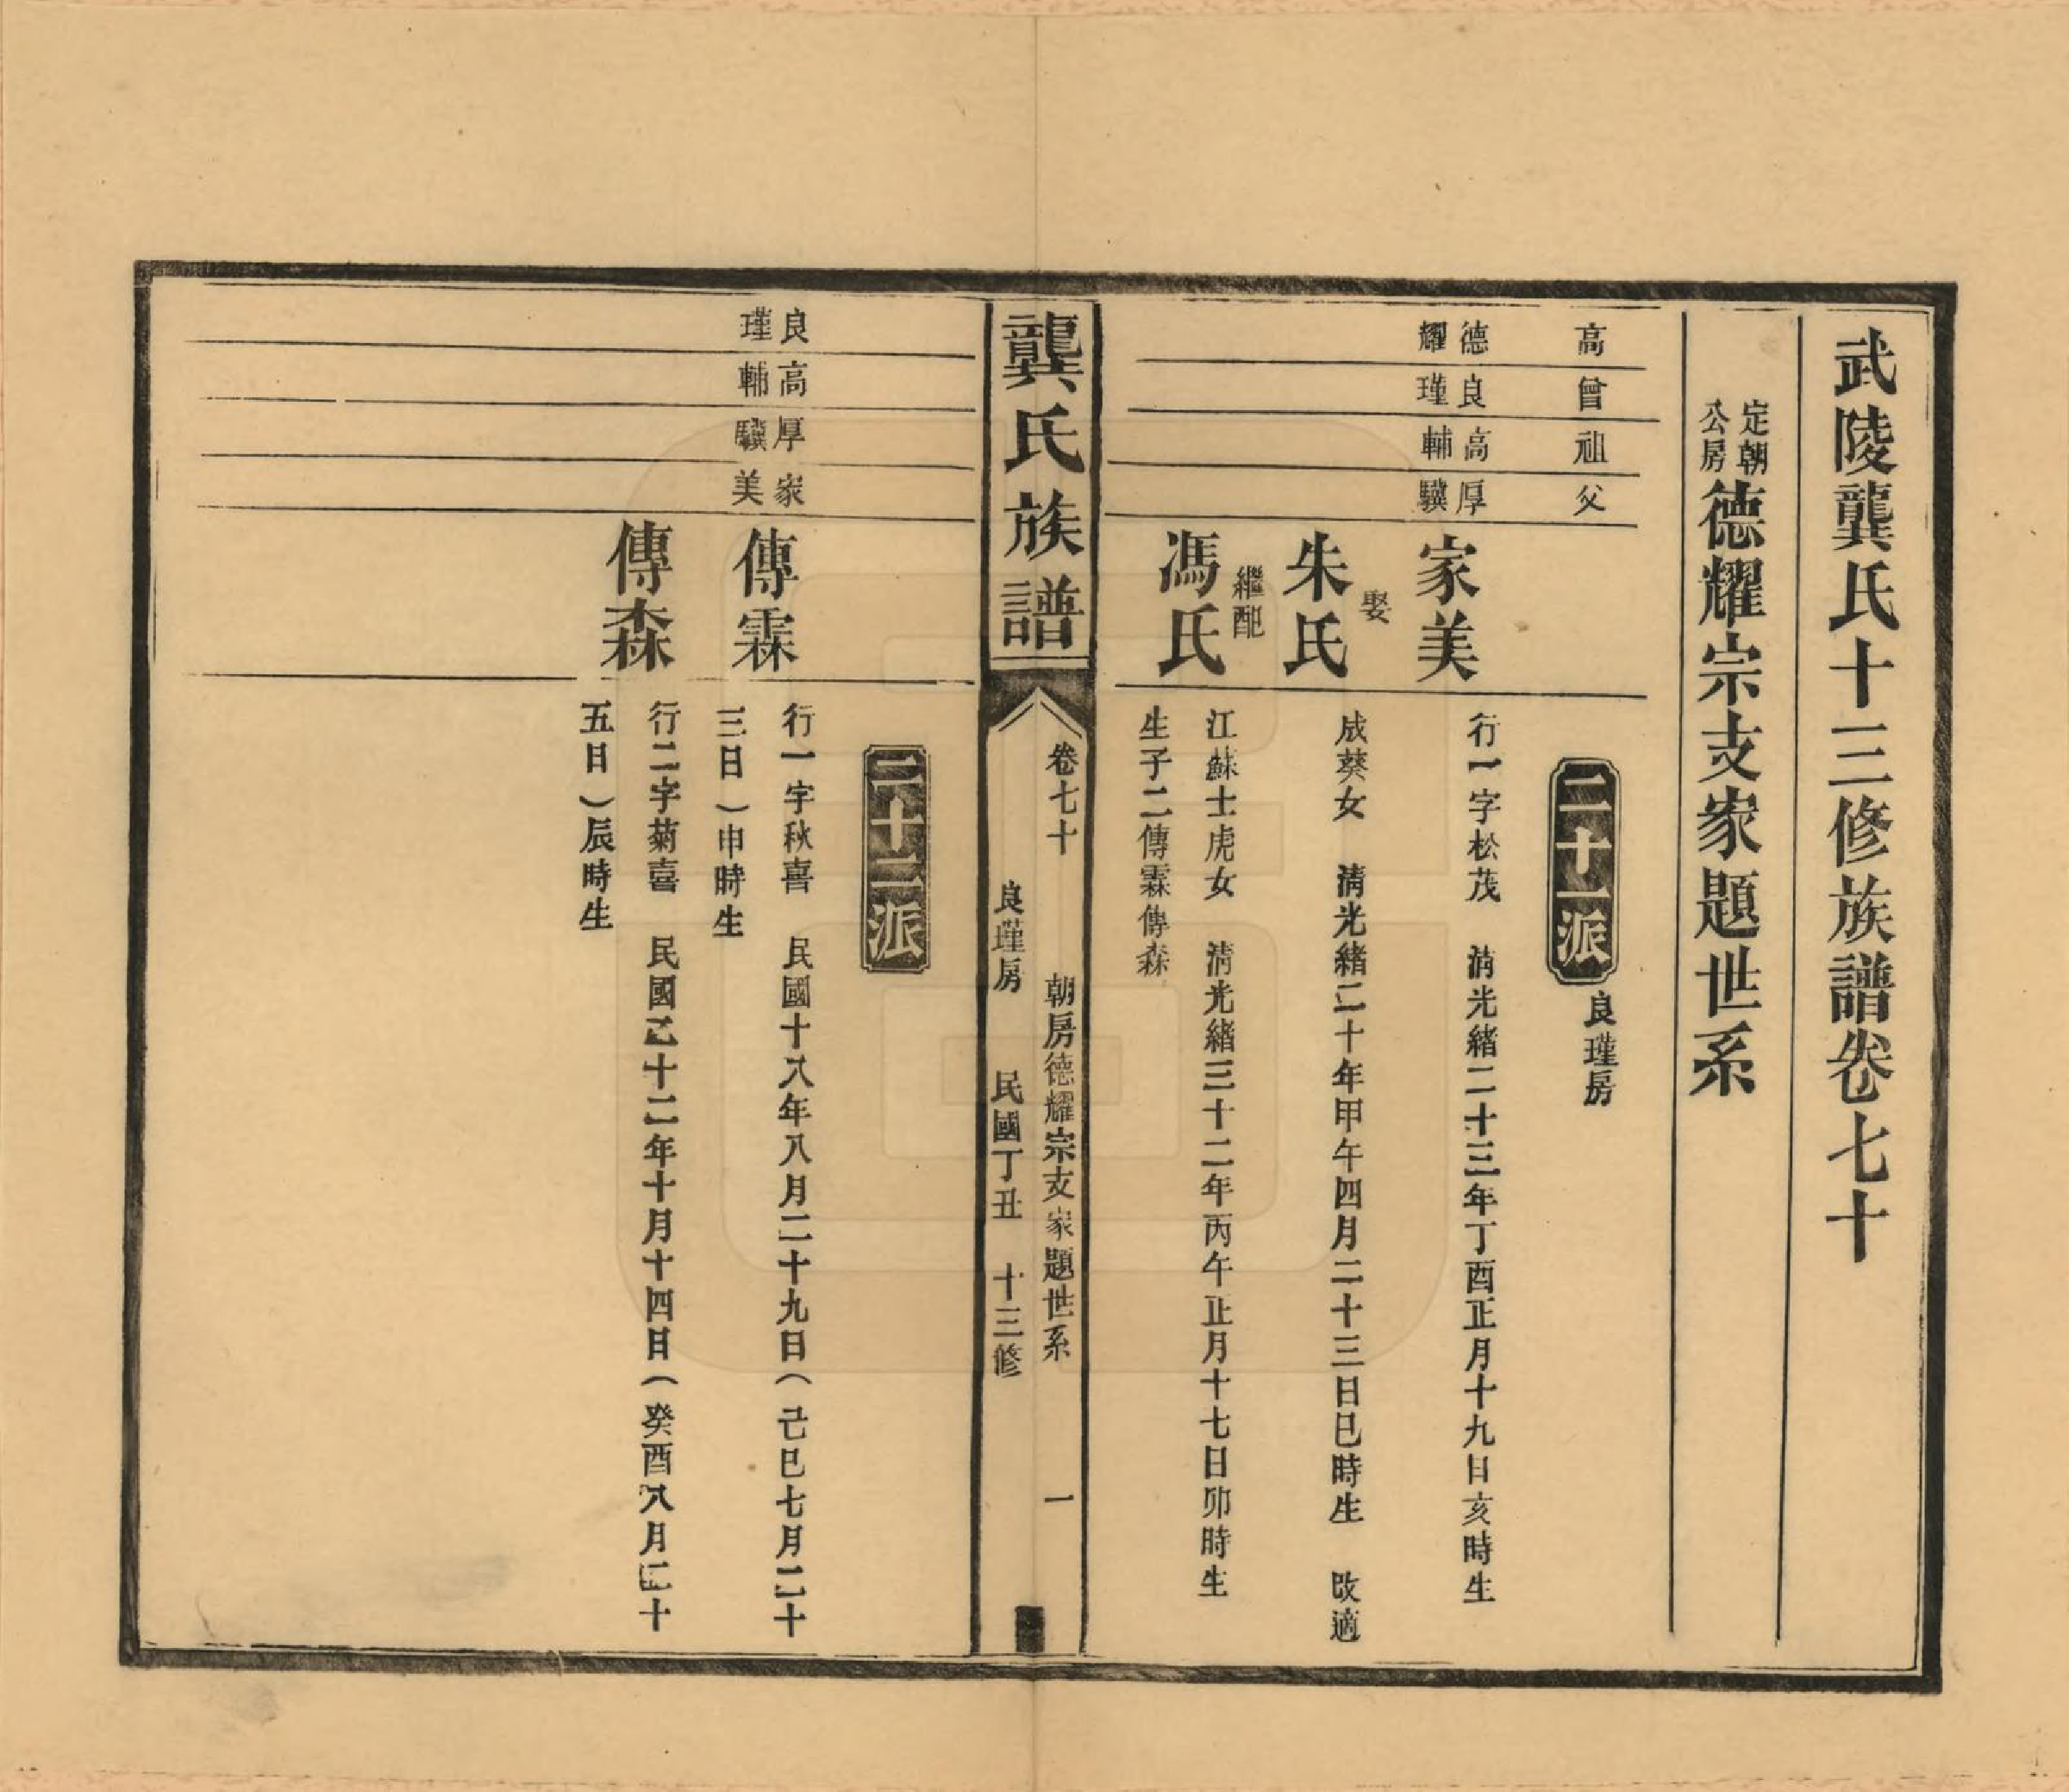 武陵龔氏十三修族譜卷七十
定朝公房德耀宗支家題世系
高
曾
祖
父
二十一派 良瑾房
德耀
良瑾
高輔
厚驥
家美
行一字松茂 清光緒二十三年丁酉正月十九日亥時生
娶
朱氏
成葵女 清光緒二十年甲午四月二十三日巳時生 改適
繼配
馮氏
江蘇士虎女 清光緒三十二年丙午正月十七日卯時生
生子二傳霖傳森
龔氏族譜
卷七十 朝房德耀宗支家題世系 一
良瑾房 民國丁丑 十三修
二十二派
良瑾
高輔
厚驥
家美
傳霖
行一字秋喜 民國十八年八月二十九日(己巳七月二十
三日)申時生
傳森
行二字菊喜 民國乙十二年十月十四日(癸酉八月二十
五日)辰時生